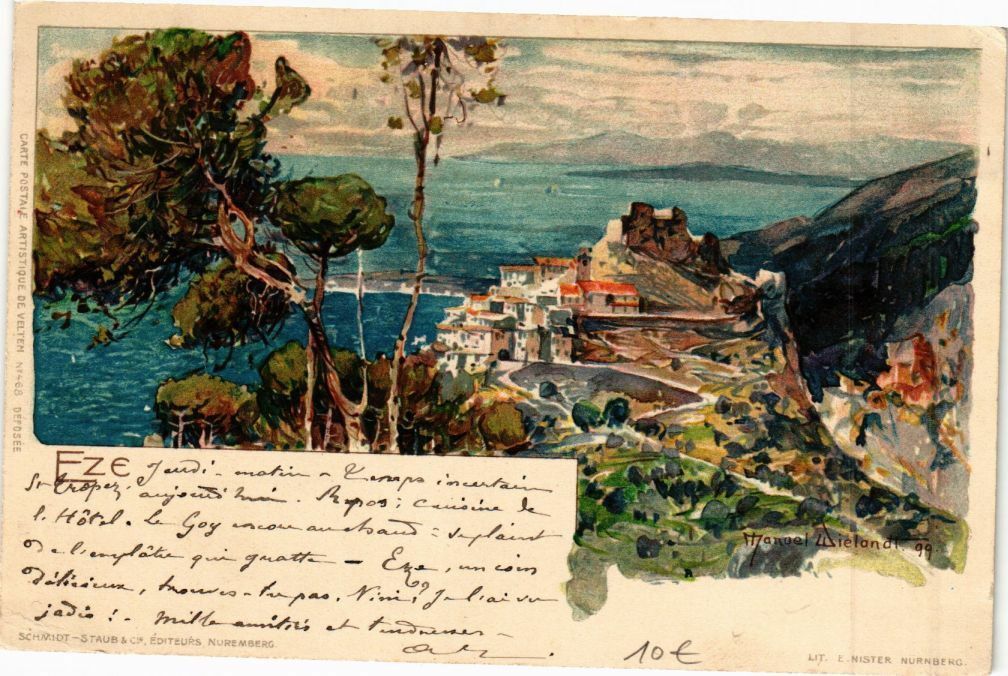 CARTE POSTALE ARTISTIQUE DE VELTEN Nº 468 DÉPOSÉE
Manuel Wielandt 99
EZE
Jeudi - matin - Temps incertain
St Tropez, aujourd'hui. Repos; cuisine de
l'Hôtel. Le Goy encore au chaud = se plaint
de l'emplâtre qui gratte - Eze, un coin
délicieux, trouves-tu pas, Nini? Je l'ai vu
jadis! Mille amitiés et tendresses -
SCHMIDT-STAUB & Cie, ÉDITEURS NUREMBERG.
10€
LIT. E. NISTER NÜRNBERG.